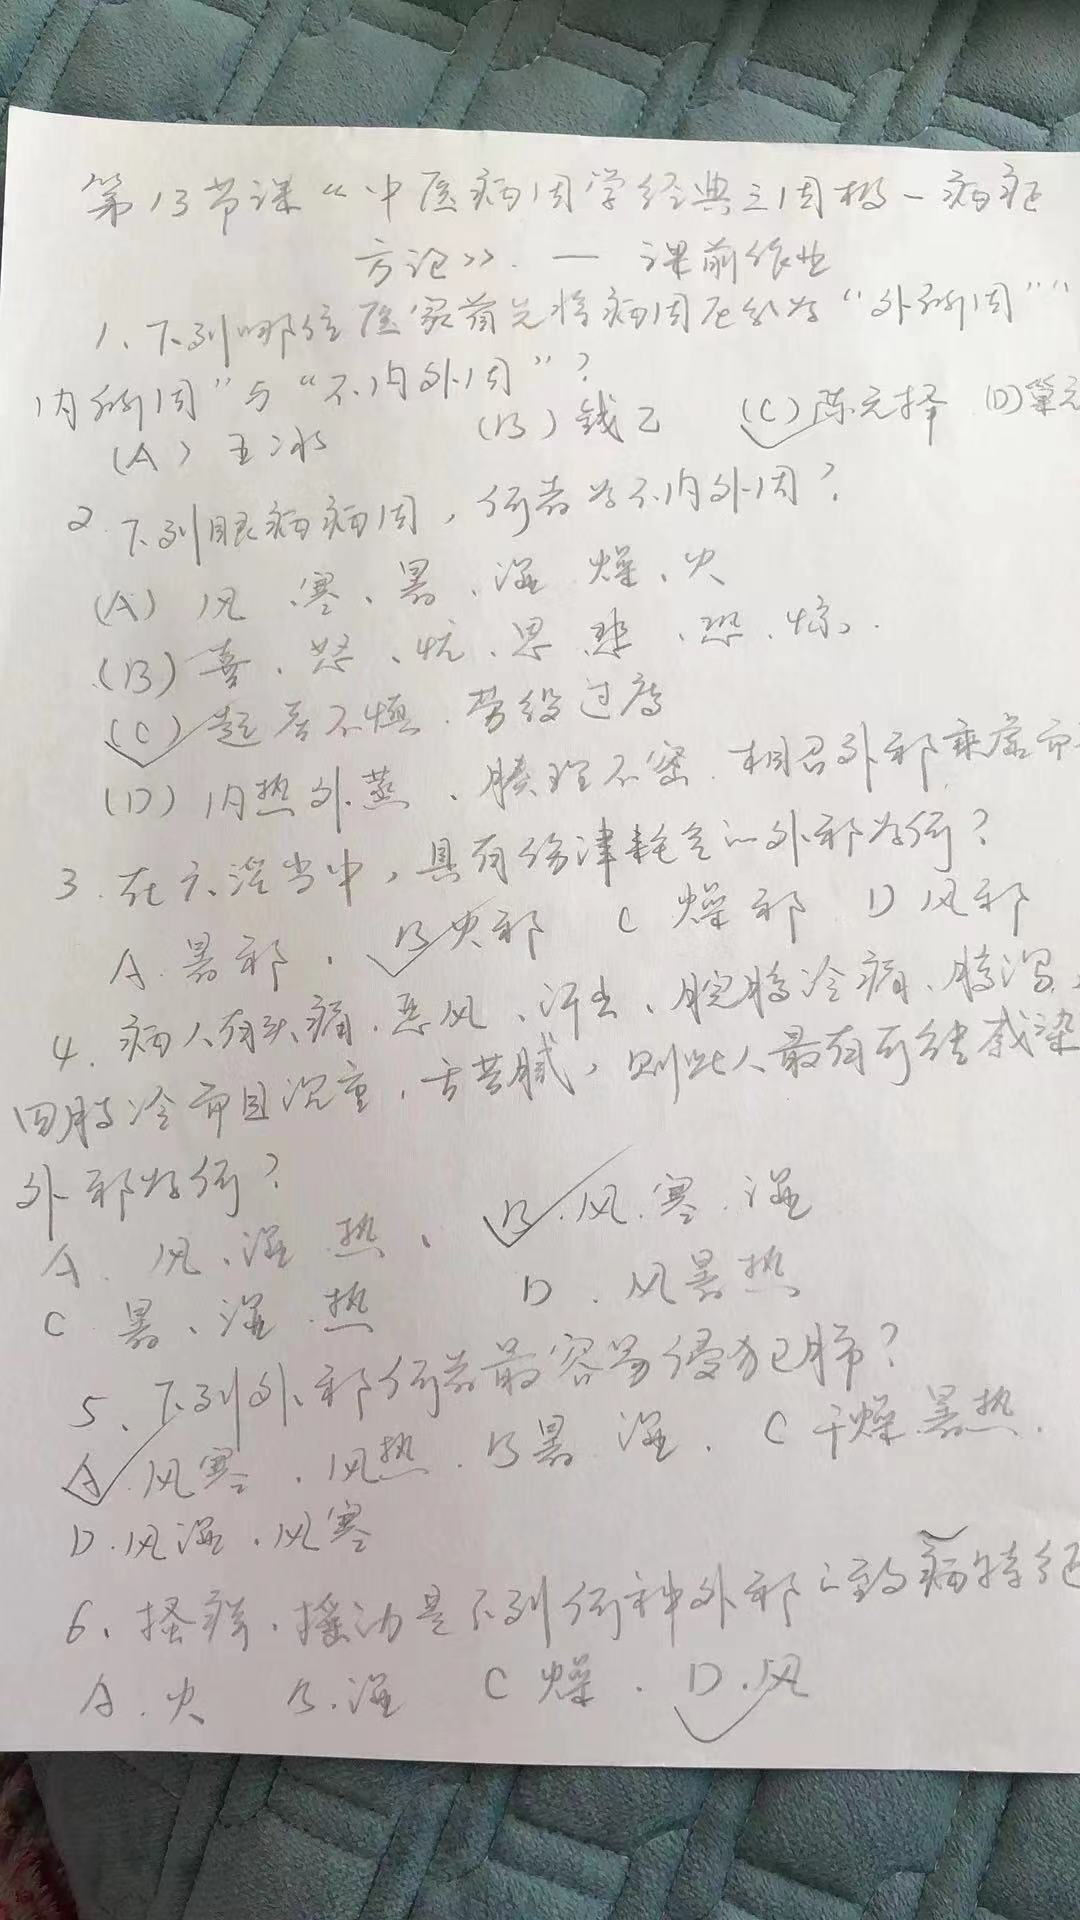 第13节课“中医病因学经典三因极一病症
方论》. — 课前作业
1、下列哪位医家首先将病因区分为“外所因”“
内所因”与“不内外因”?
(A) 王冰 (B) 钱乙 (C) 陈无择 (D) 巢元
2. 下列眼病病因,何者为不内外因?
(A) 风、寒、暑、湿 燥、火
(B) 喜、怒、忧、思、悲、恐、惊.
(C) 起居不慎、劳役过度
(D) 内热外蒸、腠理不密、相召外邪乘虚而
3. 在六淫当中,具有伤津耗气的外邪为何?
A. 暑邪. B 火邪 C 燥邪 D 风邪
4. 病人有头痛、恶风、汗出、脘腹冷痛、腹泻、
四肢冷而且沉重,舌苔腻,则此人最有可能感染
外邪为何?
A. 风、湿 热、 B. 风.寒.湿
C 暑、湿.热 D. 风暑热
5、下列外邪何者最容易侵犯肺?
A. 风寒、风热. B 暑.湿. C 干燥.暑热.
D. 风湿、风寒
6、搔痒、摇动是下列何种外邪的致病特征
A. 火 B. 湿 C 燥. D. 风